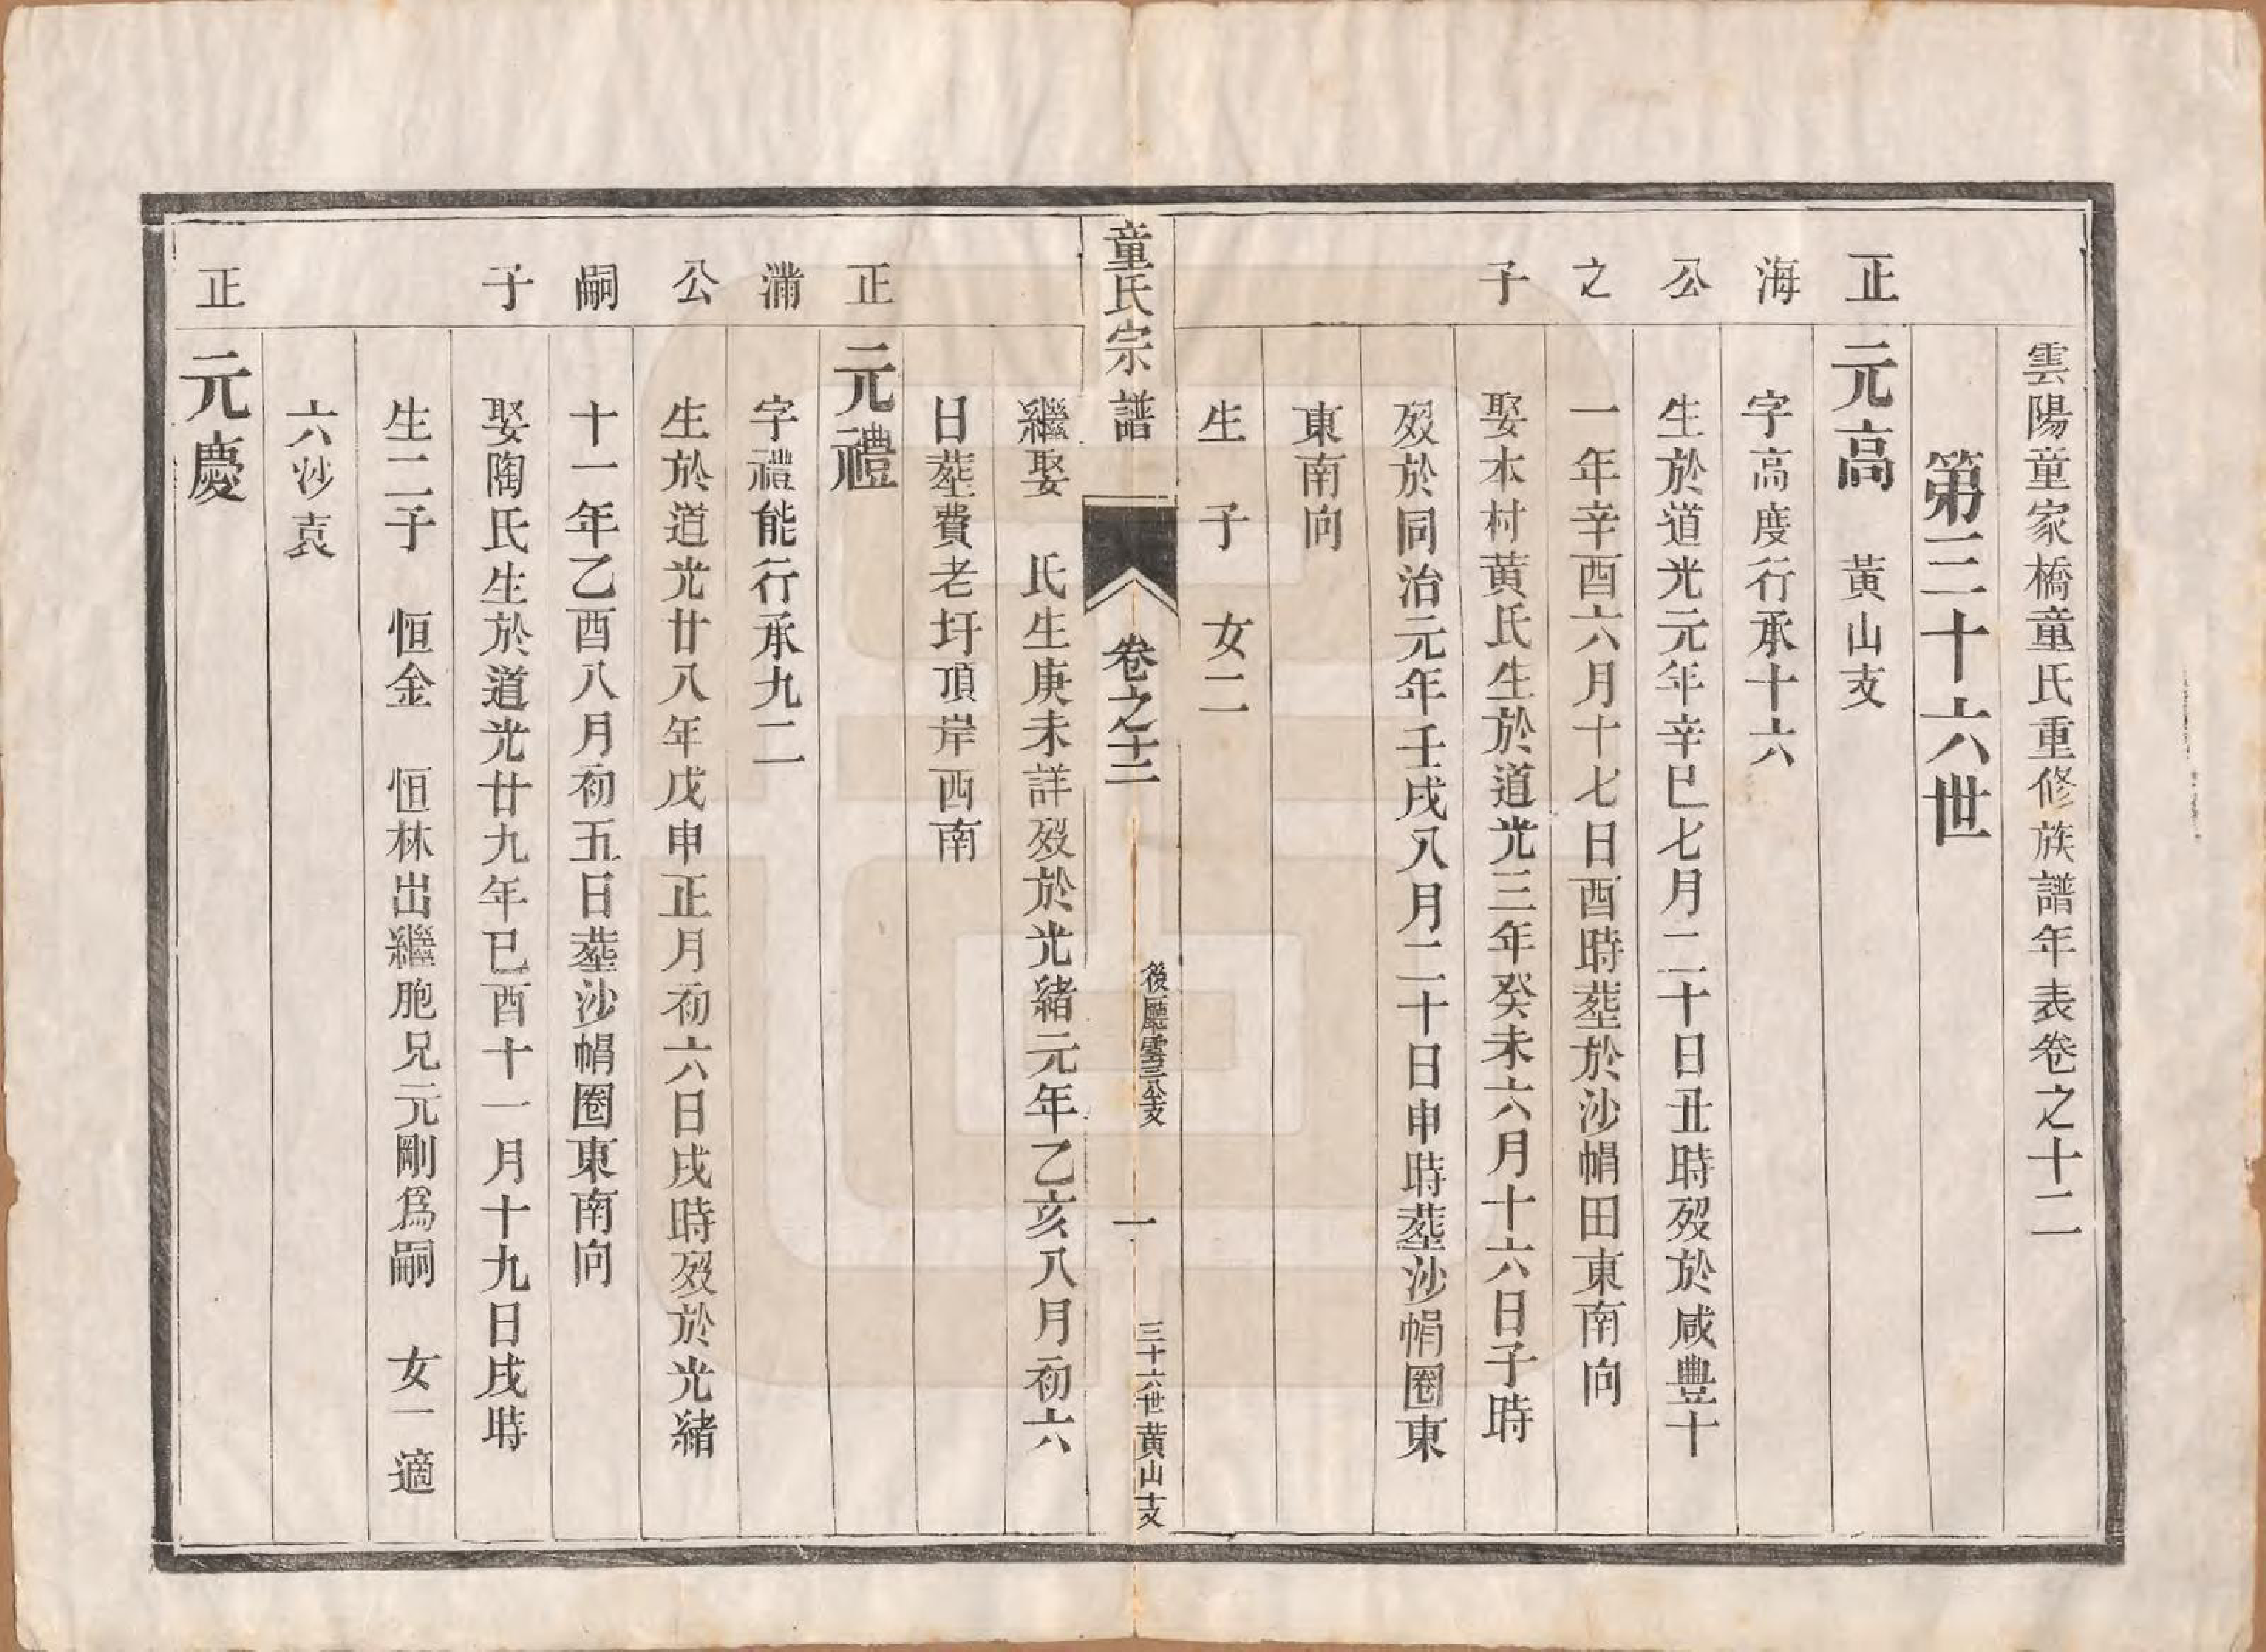 雲陽童家橋童氏重修族譜年表卷之十二
第三十六世
正海公之子
元高　黃山支
字高度行承十六
生於道光元年辛巳七月二十日丑時歿於咸豐十
一年辛酉六月十七日酉時塟於沙帽田東南向
娶本村黃氏生於道光三年癸未六月十六日子時
歿於同治元年壬戌八月二十日申時塟沙帽圈東
東南向
生　子　女二
童氏宗譜
卷之十二
後廳雲三公支
一
三十六世黃山支
繼娶　氏生庚未詳歿於光緒元年乙亥八月初六
日塟費老圩頂岸西南
正潚公嗣子
元禮
字禮能行承九二
生於道光廿八年戊申正月初六日戌時歿於光緒
十一年乙酉八月初五日塟沙帽圈東南向
娶陶氏生於道光廿九年己酉十一月十九日戌時
生二子　恒金　恒林出繼胞兄元剛爲嗣　女一適
六沙袁
正
元慶